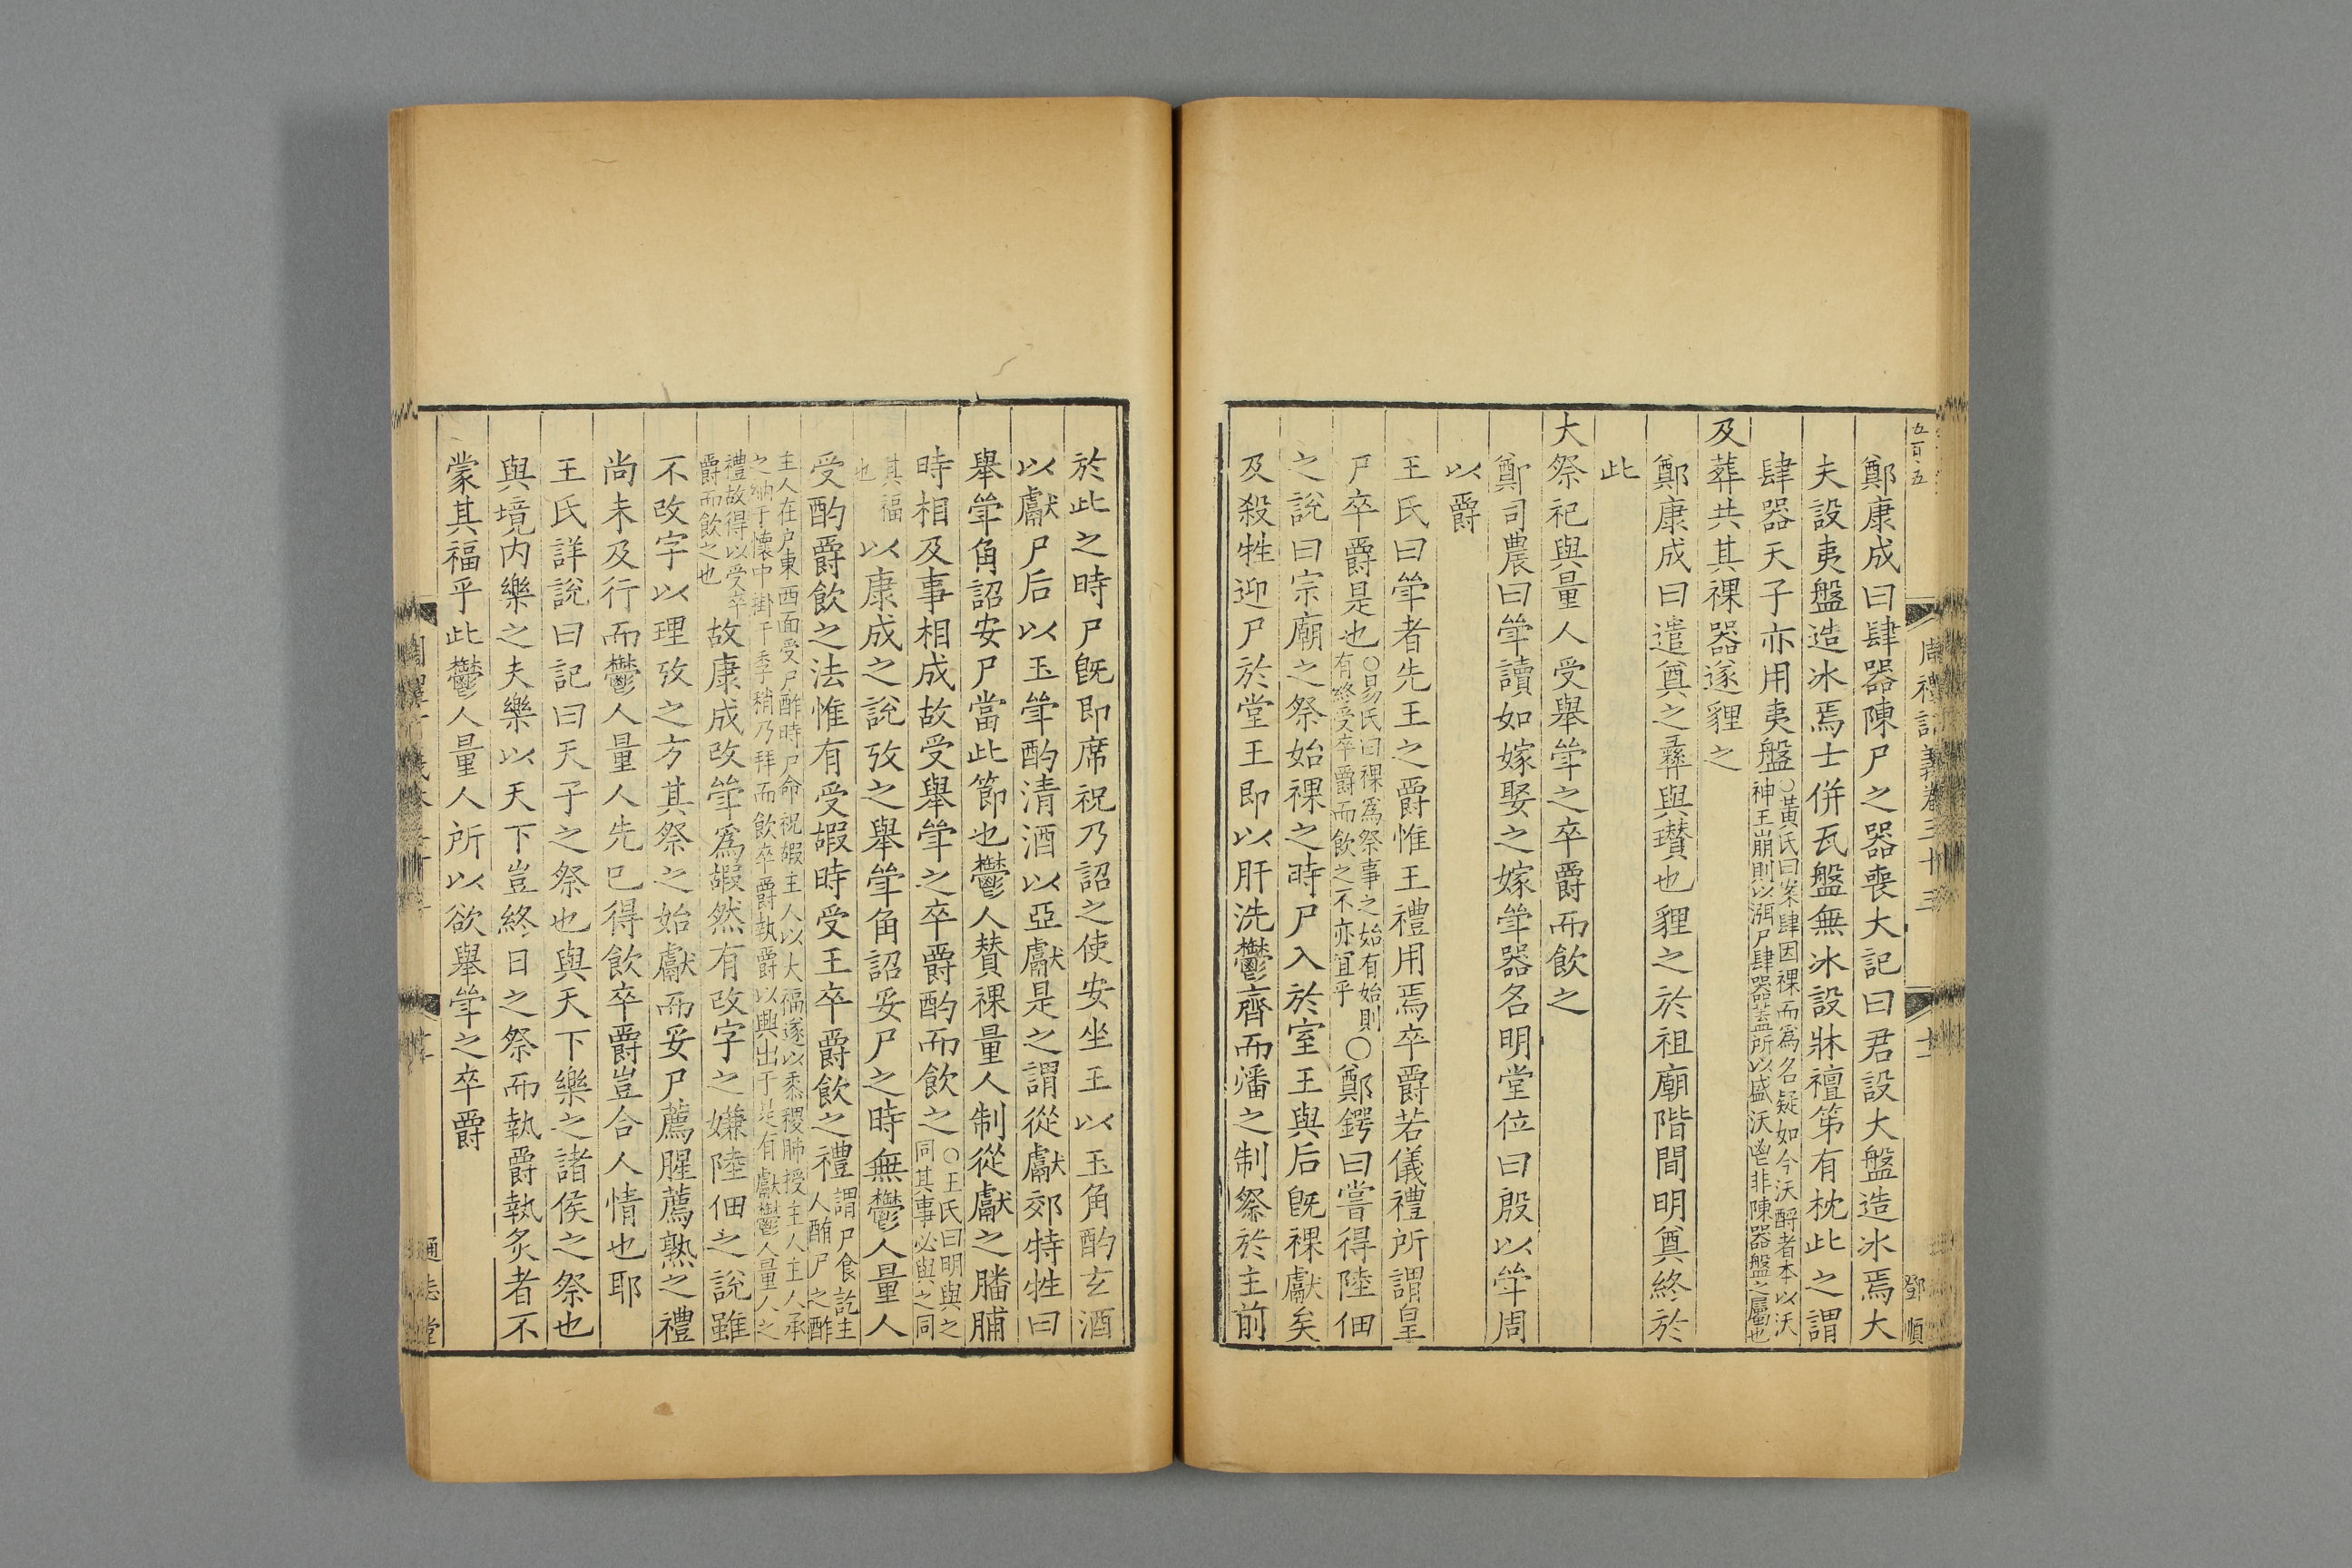 五百五
鄭康成曰肆器陳尸之器喪大記曰君設大盤造冰焉大
夫設夷盤造冰焉士併瓦盤無冰設牀襢第有枕此之謂
肆器天子亦用夷盤○黃氏曰案肆因祼而爲名疑如今沃酹者本以沃神王崩則以湏尸肆器葢所以盛沃鬯非陳器盤之屬也
及葬共其祼器遂貍之
鄭康成曰遣奠之彝與瓚也貍之於祖廟階間明奠終於
此
大祭祀與量人受舉斝之卒爵而飲之
鄭司農曰斝讀如嫁娶之嫁斝器名明堂位曰殷以斝周
以爵
王氏曰斝者先王之爵惟王禮用焉卒爵若儀禮所謂皇
尸卒爵是也○易氏曰祼爲祭事之始有始則有終受卒爵而飲之不亦宜乎○鄭鍔曰嘗得陸佃
之說曰宗廟之祭始祼之時尸入於室王與后旣祼獻矣
及殺牲迎尸於堂王即以肝洗鬱齊而燔之制祭於主前
鄧順
於此之時尸旣即席祝乃詔之使安坐王以玉角酌玄酒
以獻尸后以玉斝酌清酒以亞獻是之謂從獻郊特牲曰
舉斝角詔安尸當此節也鬱人贊祼量人制從獻之膰脯
時相及事相成故受舉斝之卒爵酌而飲之○王氏曰明與之同其事必與之同
其福也以康成之說攷之舉斝角詔妥尸之時無鬱人量人
受酌爵飲之法惟有受嘏時受王卒爵飲之禮謂尸食訖主人酳尸之酢
主人在戶東西面受尸酢時尸命祝嘏主人以大福遂以黍稷肺授主人主人承之納于懷中掛于季稍乃拜而飲卒爵執爵以興出于是有獻鬱人量人之
禮故得以受卒爵而飲之也故康成改斝爲嘏然有改字之嫌陸佃之說雖
不改字以理攷之方其祭之始獻而妥尸薦腥薦熟之禮
尚未及行而鬱人量人先已得飲卒爵豈合人情也耶
王氏詳說曰記曰天子之祭也與天下樂之諸侯之祭也
與境內樂之夫樂以天下豈終日之祭而執爵執炙者不
蒙其福乎此鬱人量人所以欲舉斝之卒爵
通志堂